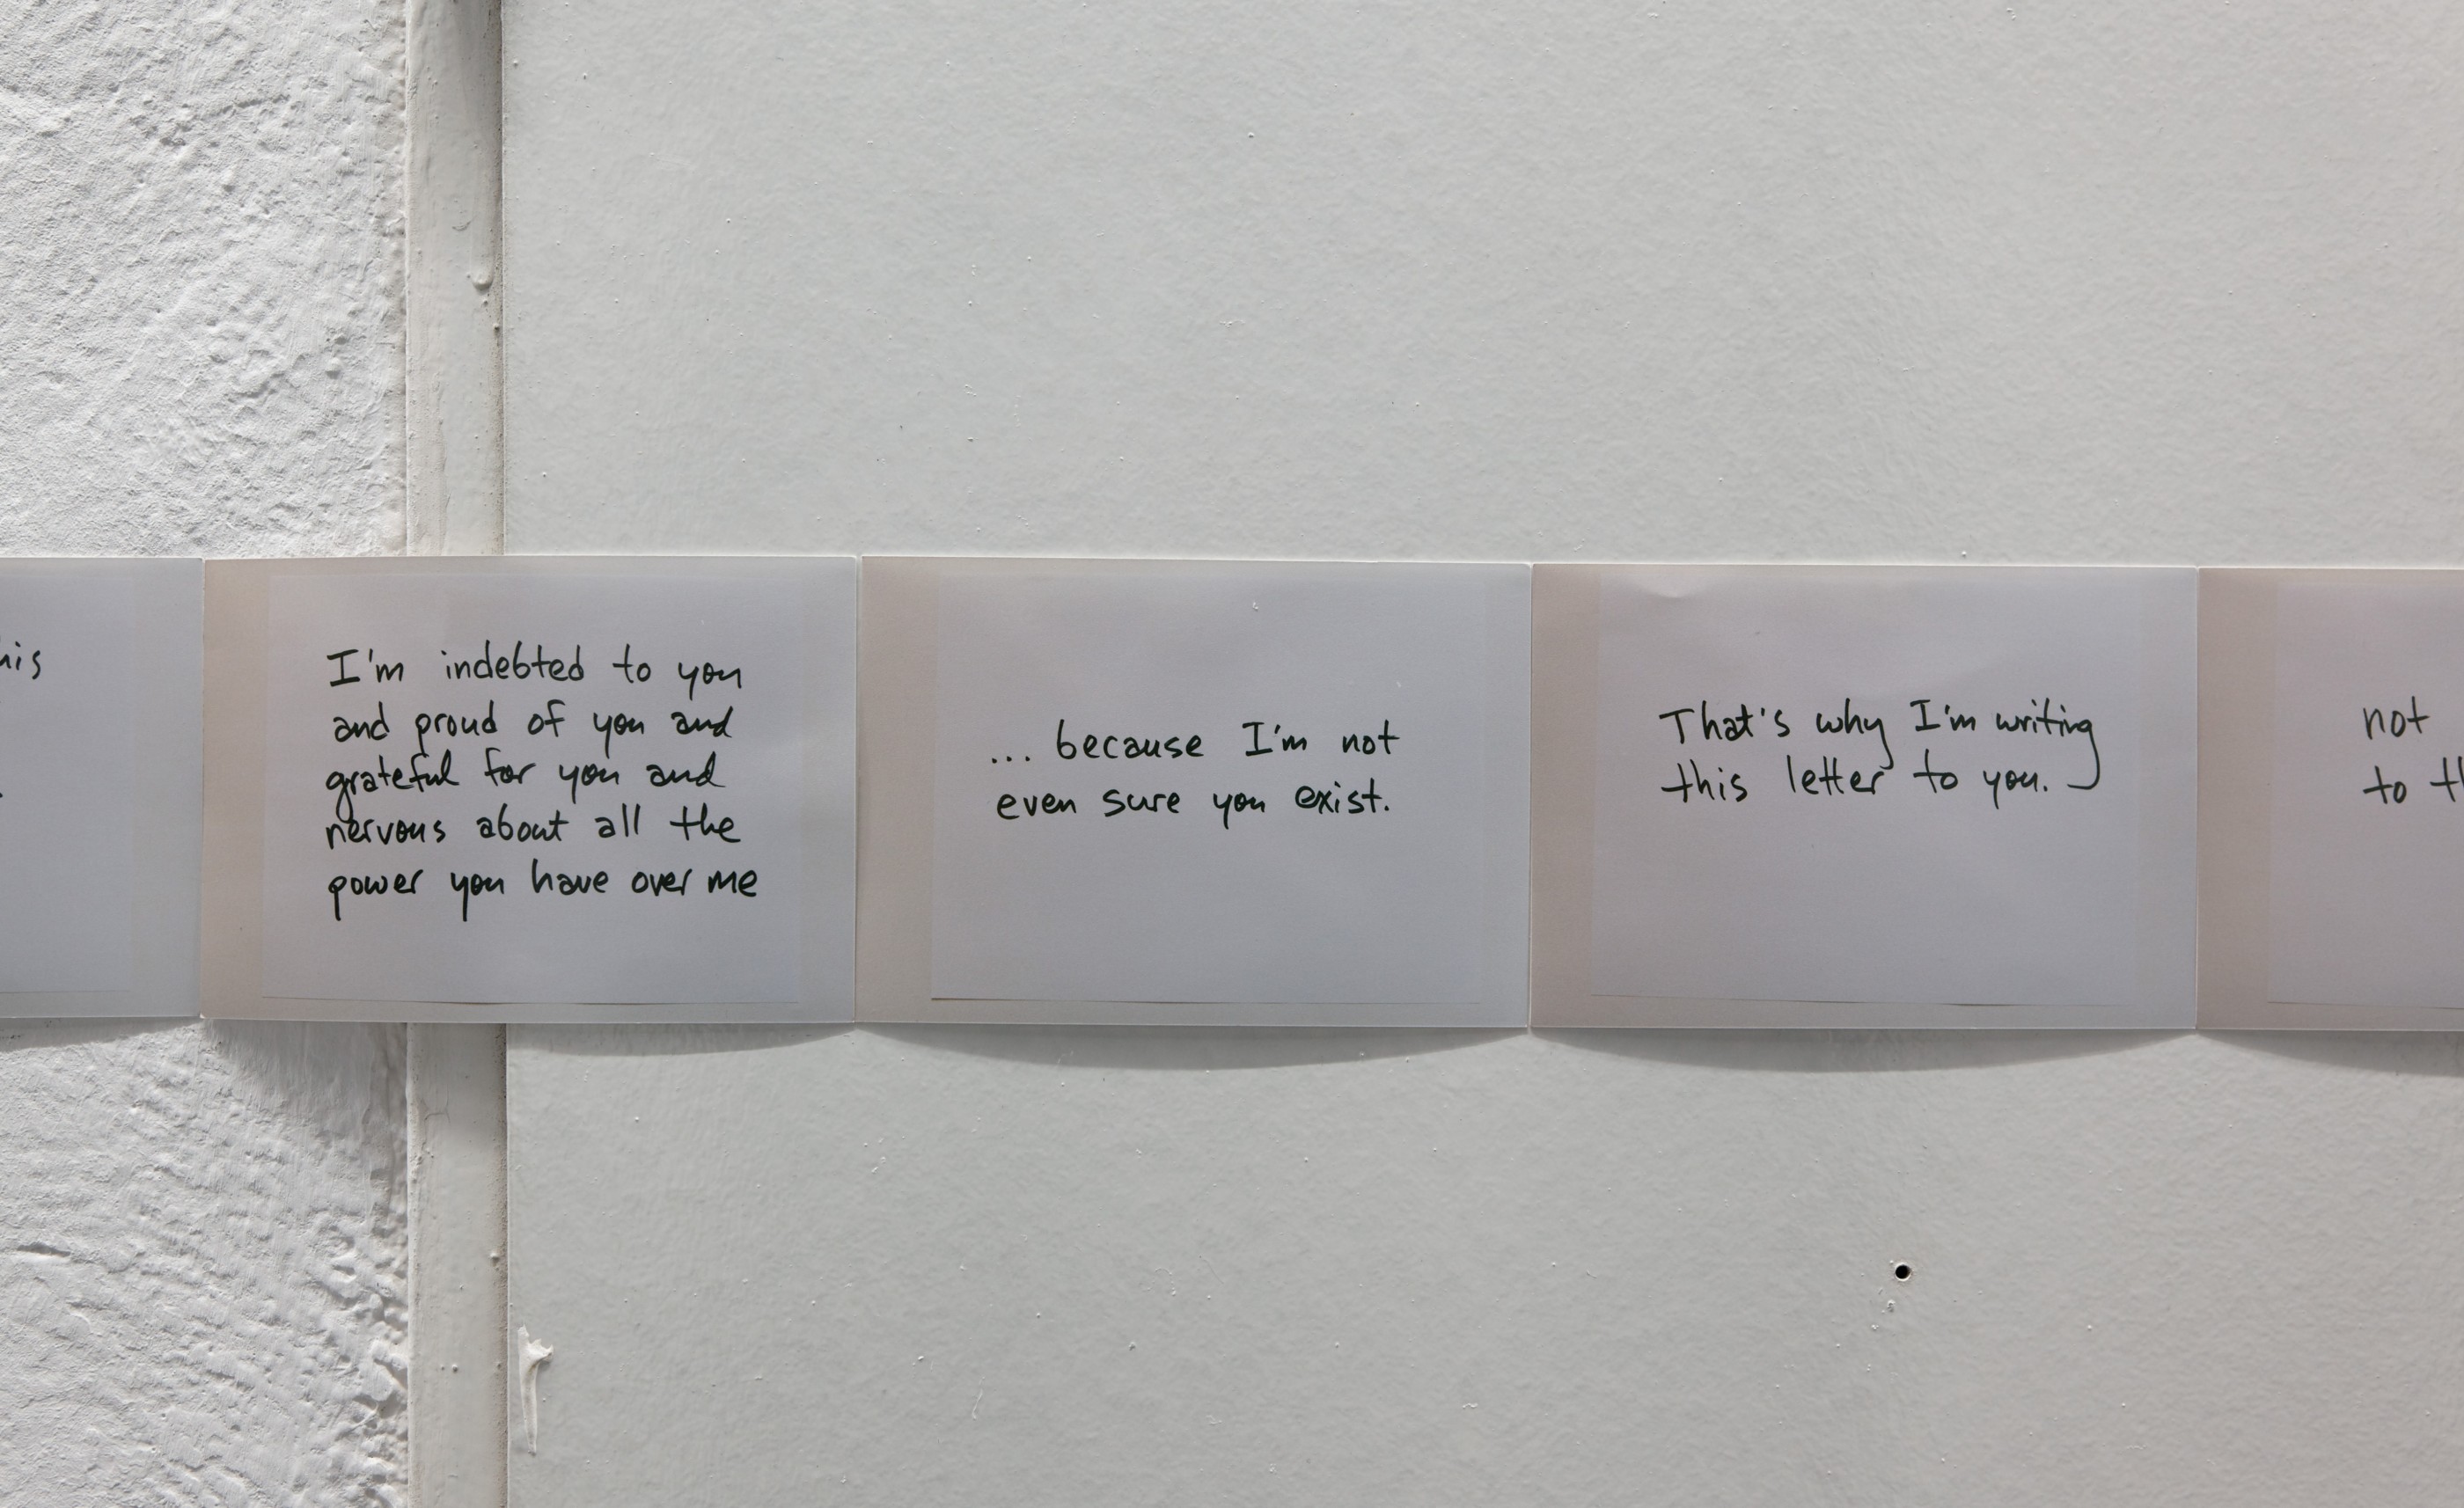 I'm indebted to you
and proud of you and
grateful for you and
nervous about all the
power you have over me
... because I'm not
even sure you exist.
That's why I'm writing
this letter to you.
not
to